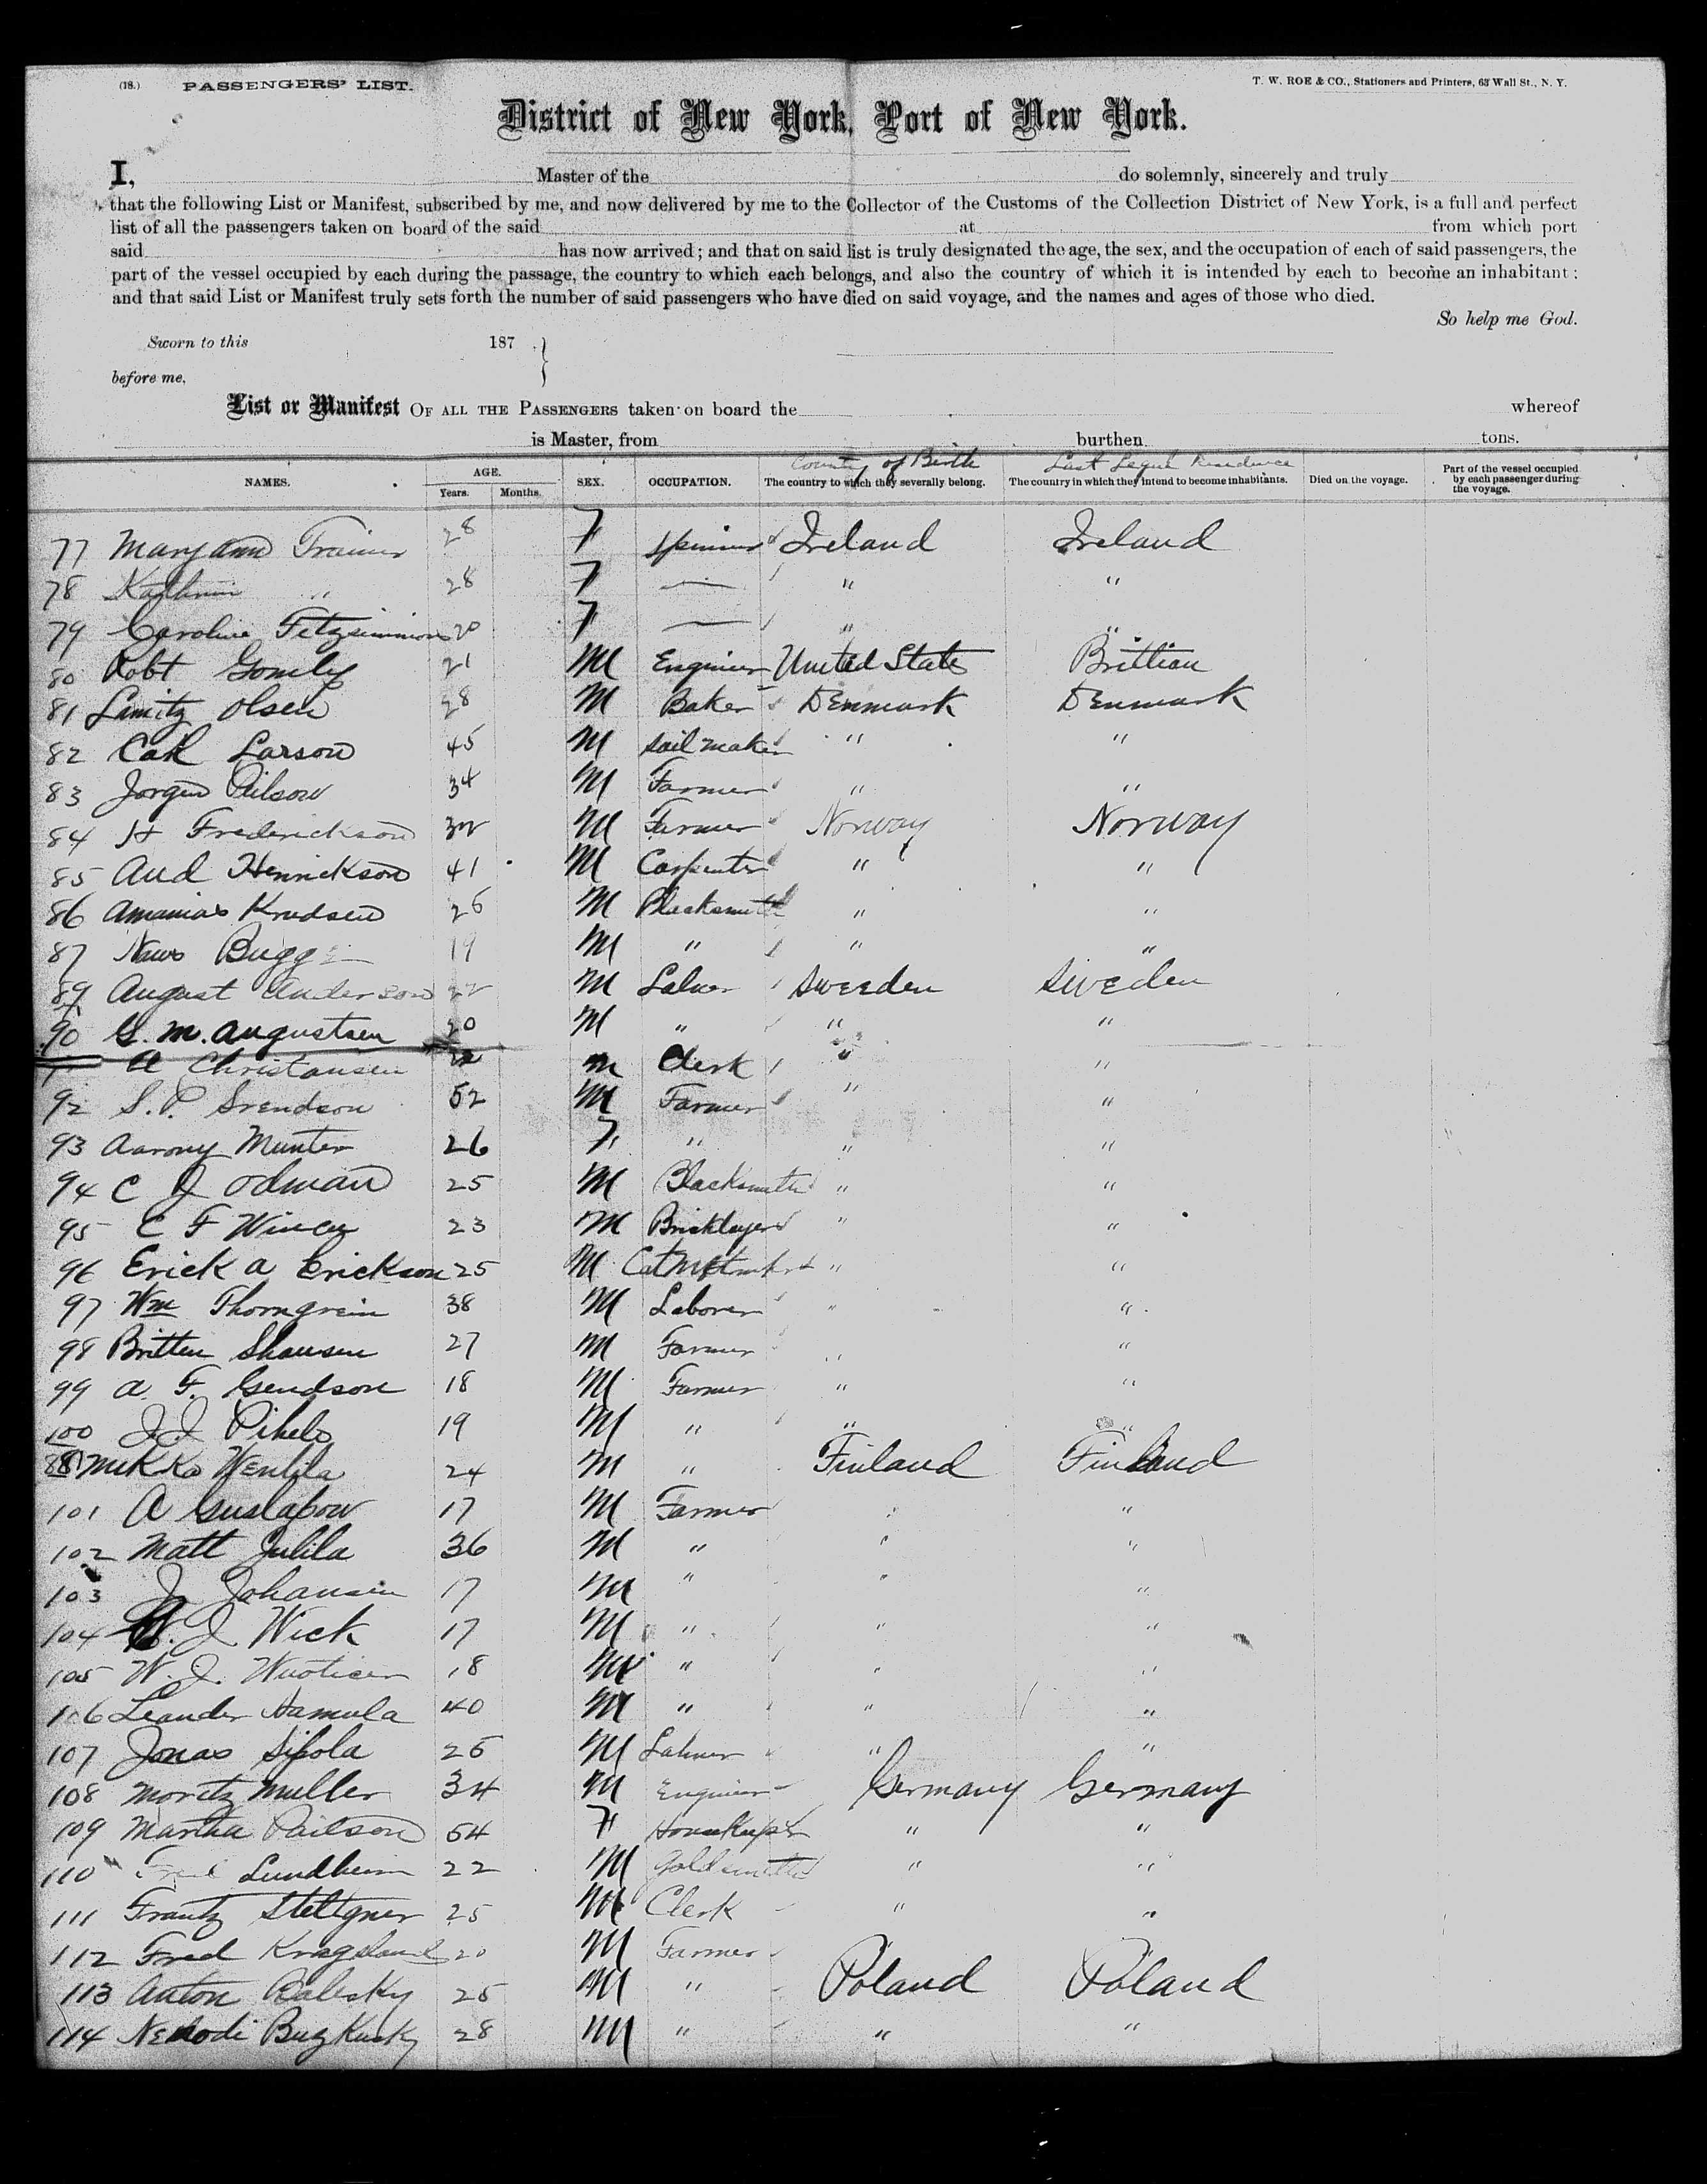 (18.) PASSENGERS' LIST. T. W. ROE & CO., Stationers and Printers, 63 Wall St., N. Y.
District of New York, Port of New York.
I, Master of the do solemnly, sincerely and truly
that the following List or Manifest, subscribed by me, and now delivered by me to the Collector of the Customs of the Collection District of New York, is a full and perfect
list of all the passengers taken on board of the said at from which port
said has now arrived; and that on said list is truly designated the age, the sex, and the occupation of each of said passengers, the
part of the vessel occupied by each during the passage, the country to which each belongs, and also the country of which it is intended by each to become an inhabitant;
and that said List or Manifest truly sets forth the number of said passengers who have died on said voyage, and the names and ages of those who died.
So help me God.
Sworn to this 187
before me,
List or Manifest OF ALL THE PASSENGERS taken on board the whereof
is Master, from burthen tons.
County of Birth Last Legal Residence
NAMES. AGE. Years. Months. SEX. OCCUPATION. The country to which they severally belong. The country in which they intend to become inhabitants. Died on the voyage. Part of the vessel occupied by each passenger during the voyage.
77 Mary ann Trainer 28 F Ireland Ireland
78 " 28 F — " "
79 Caroline Fitzsimmons 20 F — " "
80 Robt Gomly 21 M Enginer United States Brittian
81 Olsen 28 M Baker Denmark Denmark
82 Carl Larson 45 M sail maker " "
83 Jorgen 34 M Farmer " "
84 H Frederickson 32 M Farmer Norway Norway
85 And Henrickson 41 M Carpenter " "
86 Knudsen 26 M Blacksmith " "
87 Bugg 19 M " " "
89 August Anderson 22 M Sweeden Sweden
90 G. M. Augustsen 20 M " " "
A Christansen M Clerk " "
92 S. P. Svendson 52 M Farmer " "
93 Munter 26 F " " "
94 C J Odman 25 M Blacksmith " "
95 C F 23 M Bricklayer " "
96 Erick A Erickson 25 M " "
97 Wm Thorngrein 38 M Laborer " "
98 Britten 27 M Farmer " "
99 A. F. 18 M Farmer " "
100 J. J. 19 M " " "
88 24 M " Finland Finland
101 A 17 M Farmer " "
102 Matt Julila 36 M " " "
103 J. Johansen 17 M " " "
104 J Wick 17 M " " "
105 W. J. 18 M " " "
106 Leander Hamula 40 M " " "
107 Jonas Sipola 26 M " "
108 Moritz Muller 34 M Enginer Germany Germany
109 Martha 54 F Housekeeper " "
110 Lundheim 22 M Goldsmith " "
111 Frantz 25 M Clerk " "
112 Fred 20 M Farmer
113 Anton 25 M " Poland Poland
114 28 M " " "